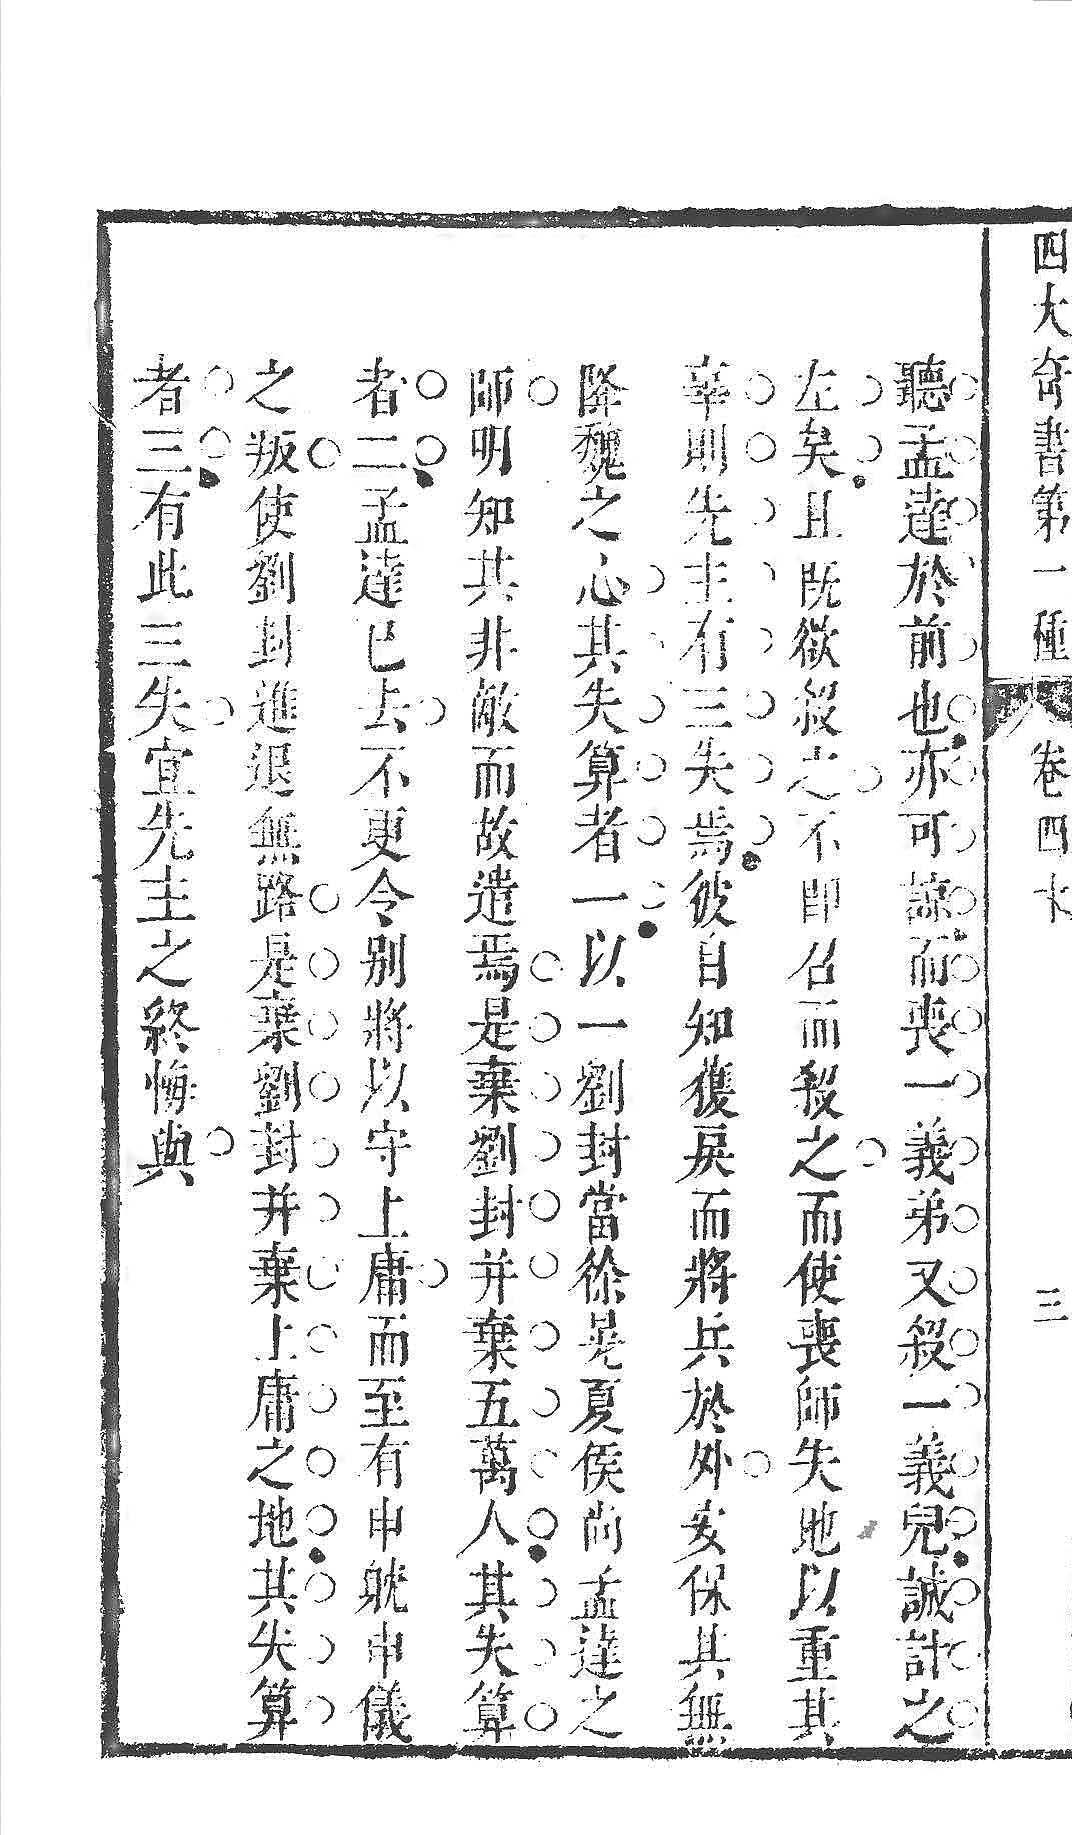 四大奇書第一種　卷四十　三
聽孟達於前也亦可諒而喪一義弟又殺一義兒誠計之
左矣且既欲殺之不即召而殺之而使喪師失地以重其
辜則先主有三失焉彼自知獲戾而將兵於外安保其無
降魏之心其失算者一以一劉封當徐晃夏侯尚孟達之
師明知其非敵而故遣焉是棄劉封并棄五萬人其失算
者二孟達已去不更令别將以守上庸而至有申躭申儀
之叛使劉封進退無路是棄劉封并棄上庸之地其失算
者三有此三失宜先主之終悔與